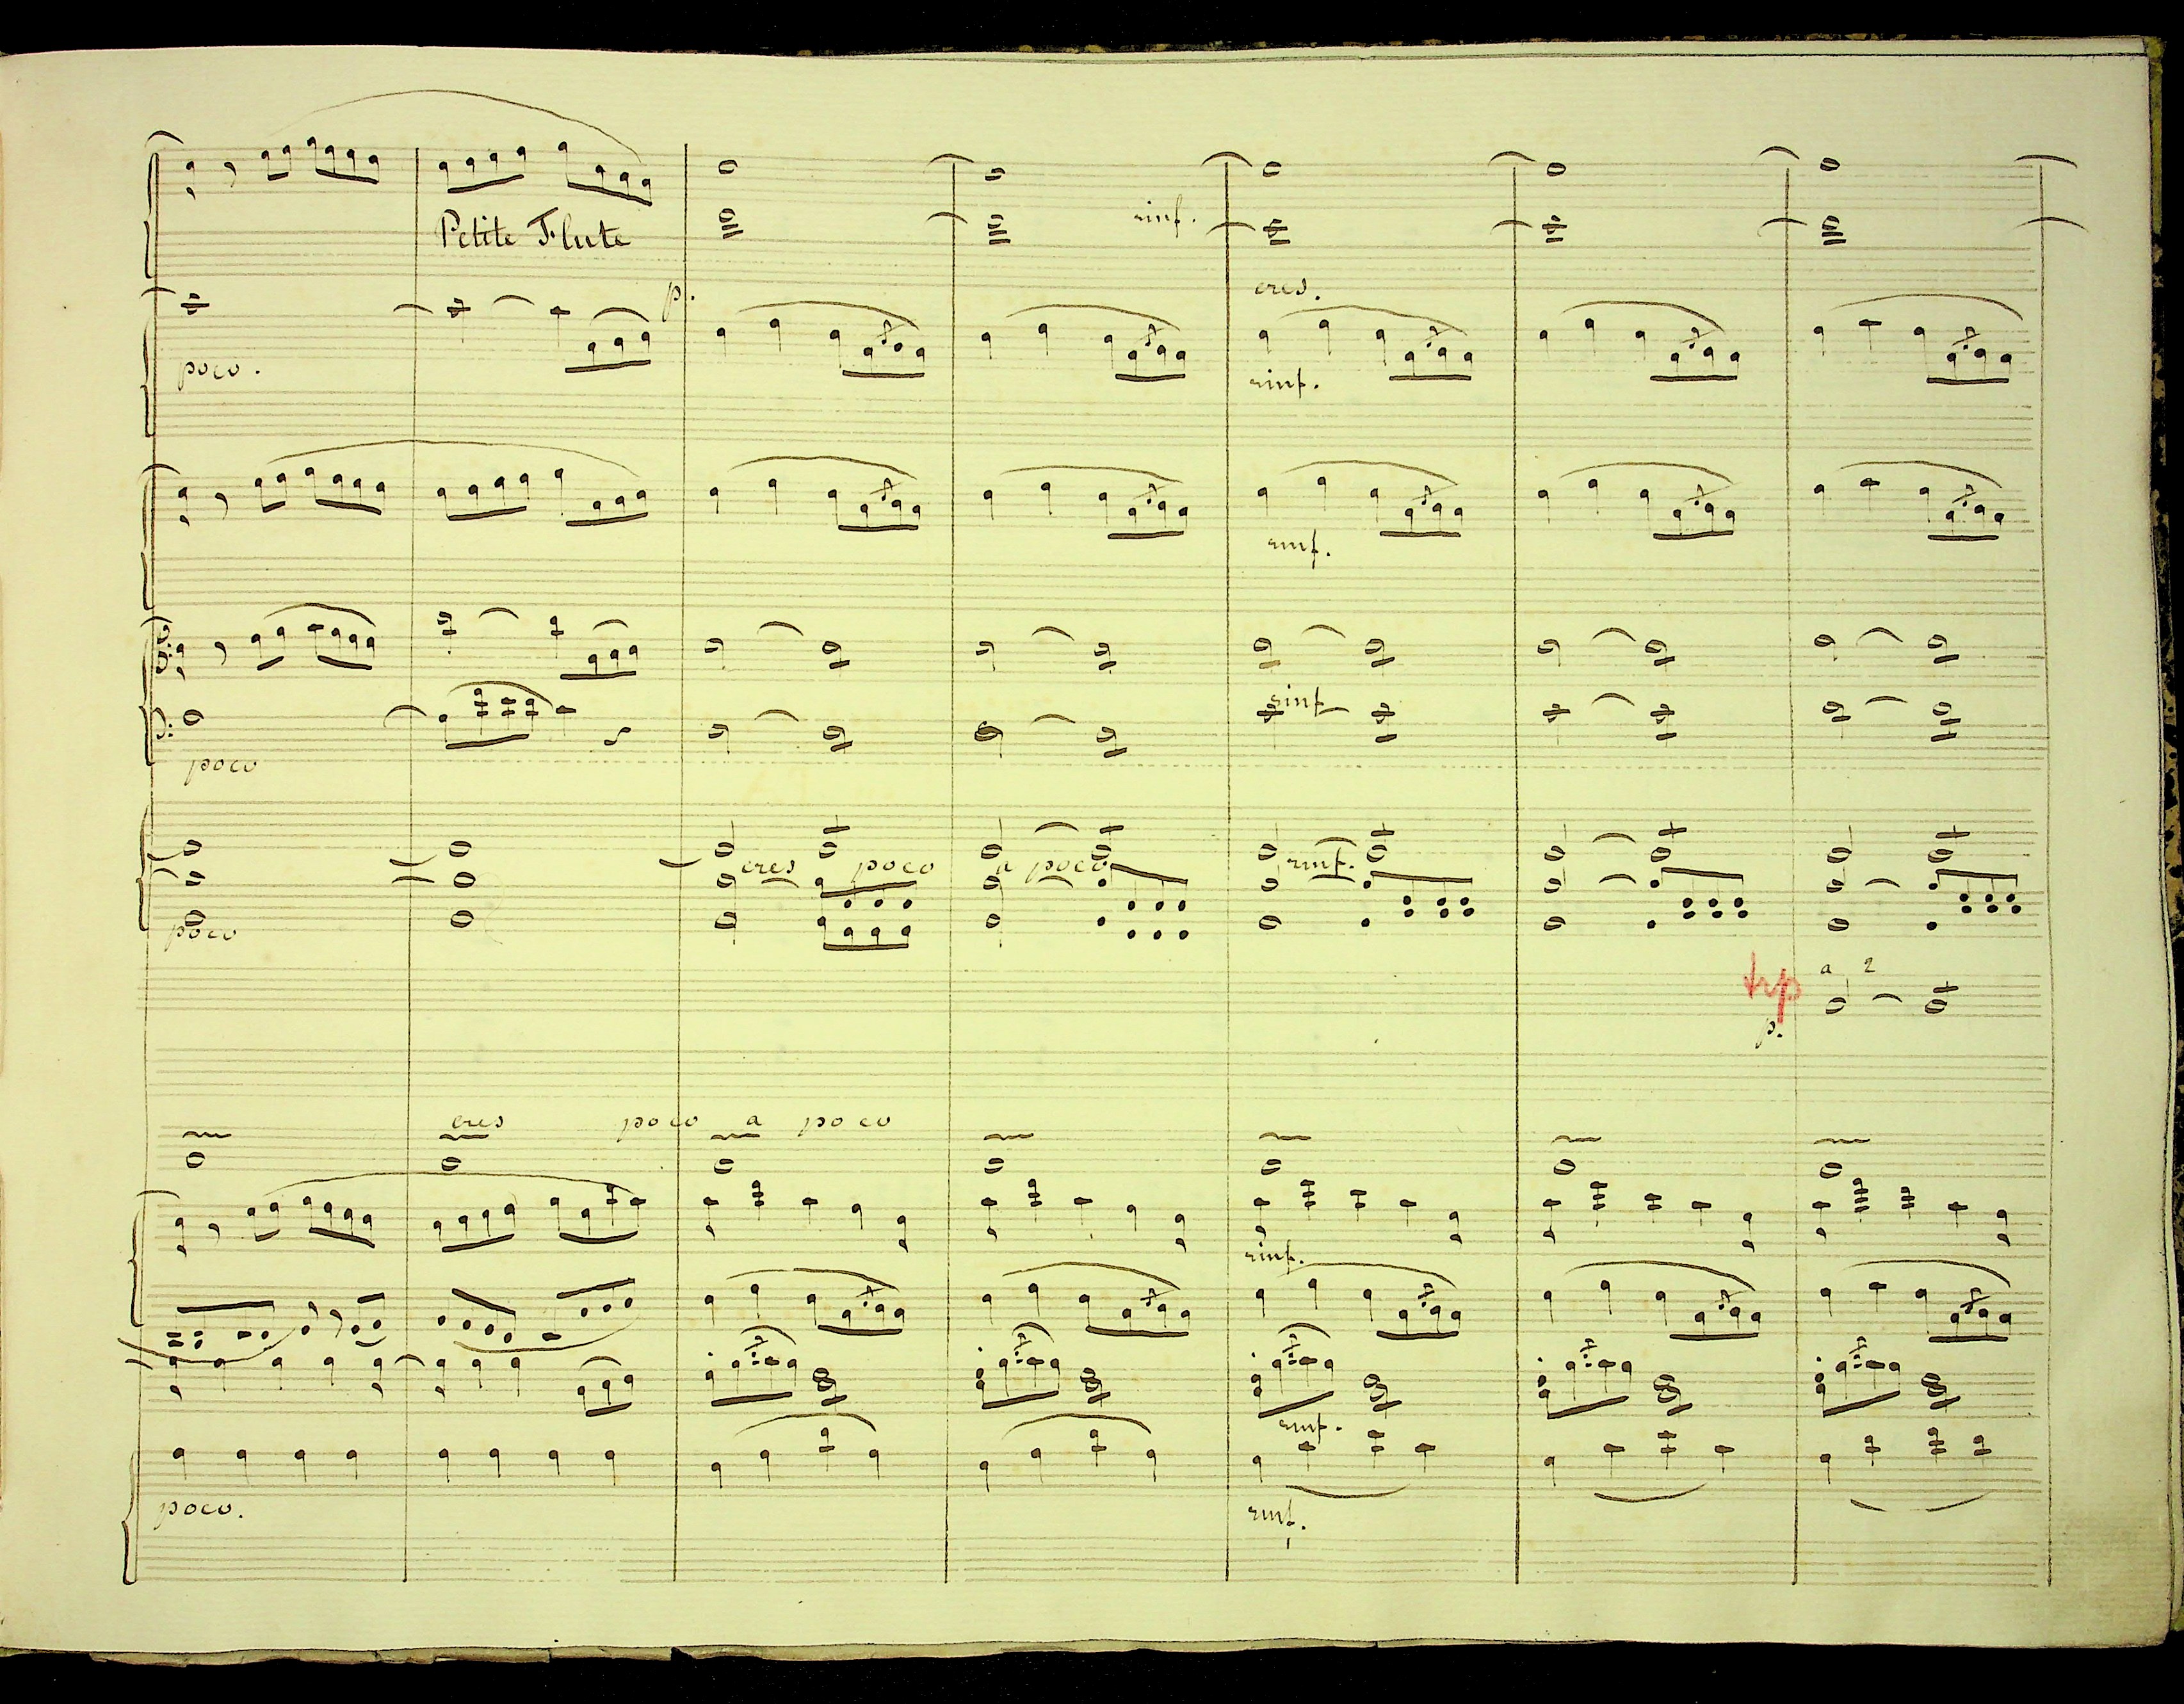 Petite Flute
rinf.
p.
cres.
poco.
rinf.
rinf.
rinf
poco
cres poco a poco
rinf.
poco
trp
a 2
p.
cres poco a poco
rinf.
rinf.
poco.
rinf.